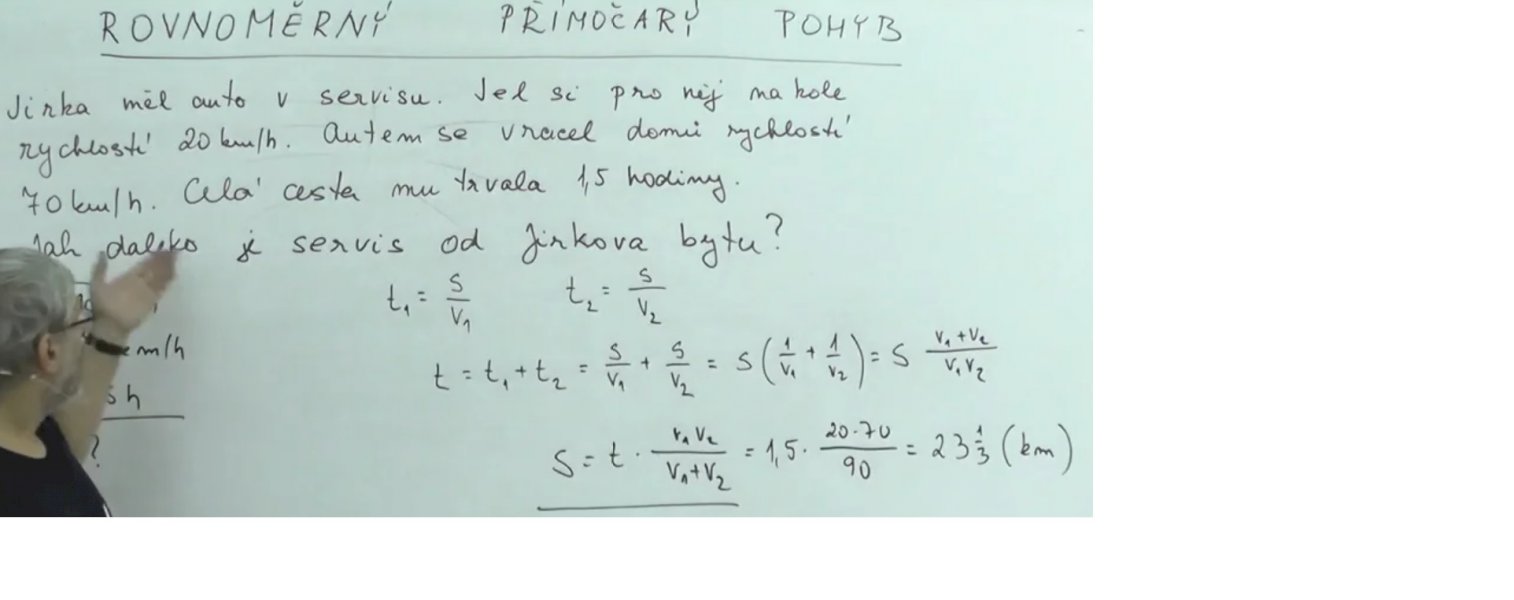 ROVNOMĚRNÝ PŘÍMOČARÝ POHYB
Jirka měl auto v servisu. Jel si pro něj na kole
rychlostí 20 km/h. Autem se vracel domů rychlostí
70 km/h. Celá cesta mu trvala 1,5 hodiny.
Jak daleko je servis od Jirkova bytu?
t₁ = s/v₁ t₂ = s/v₂
m/h
t = t₁ + t₂ = s/v₁ + s/v₂ = s (1/v₁ + 1/v₂) = s (v₁+v₂)/(v₁v₂)
h
?
s = t · (v₁v₂)/(v₁+v₂) = 1,5 · (20·70)/90 = 23 1/3 (km)